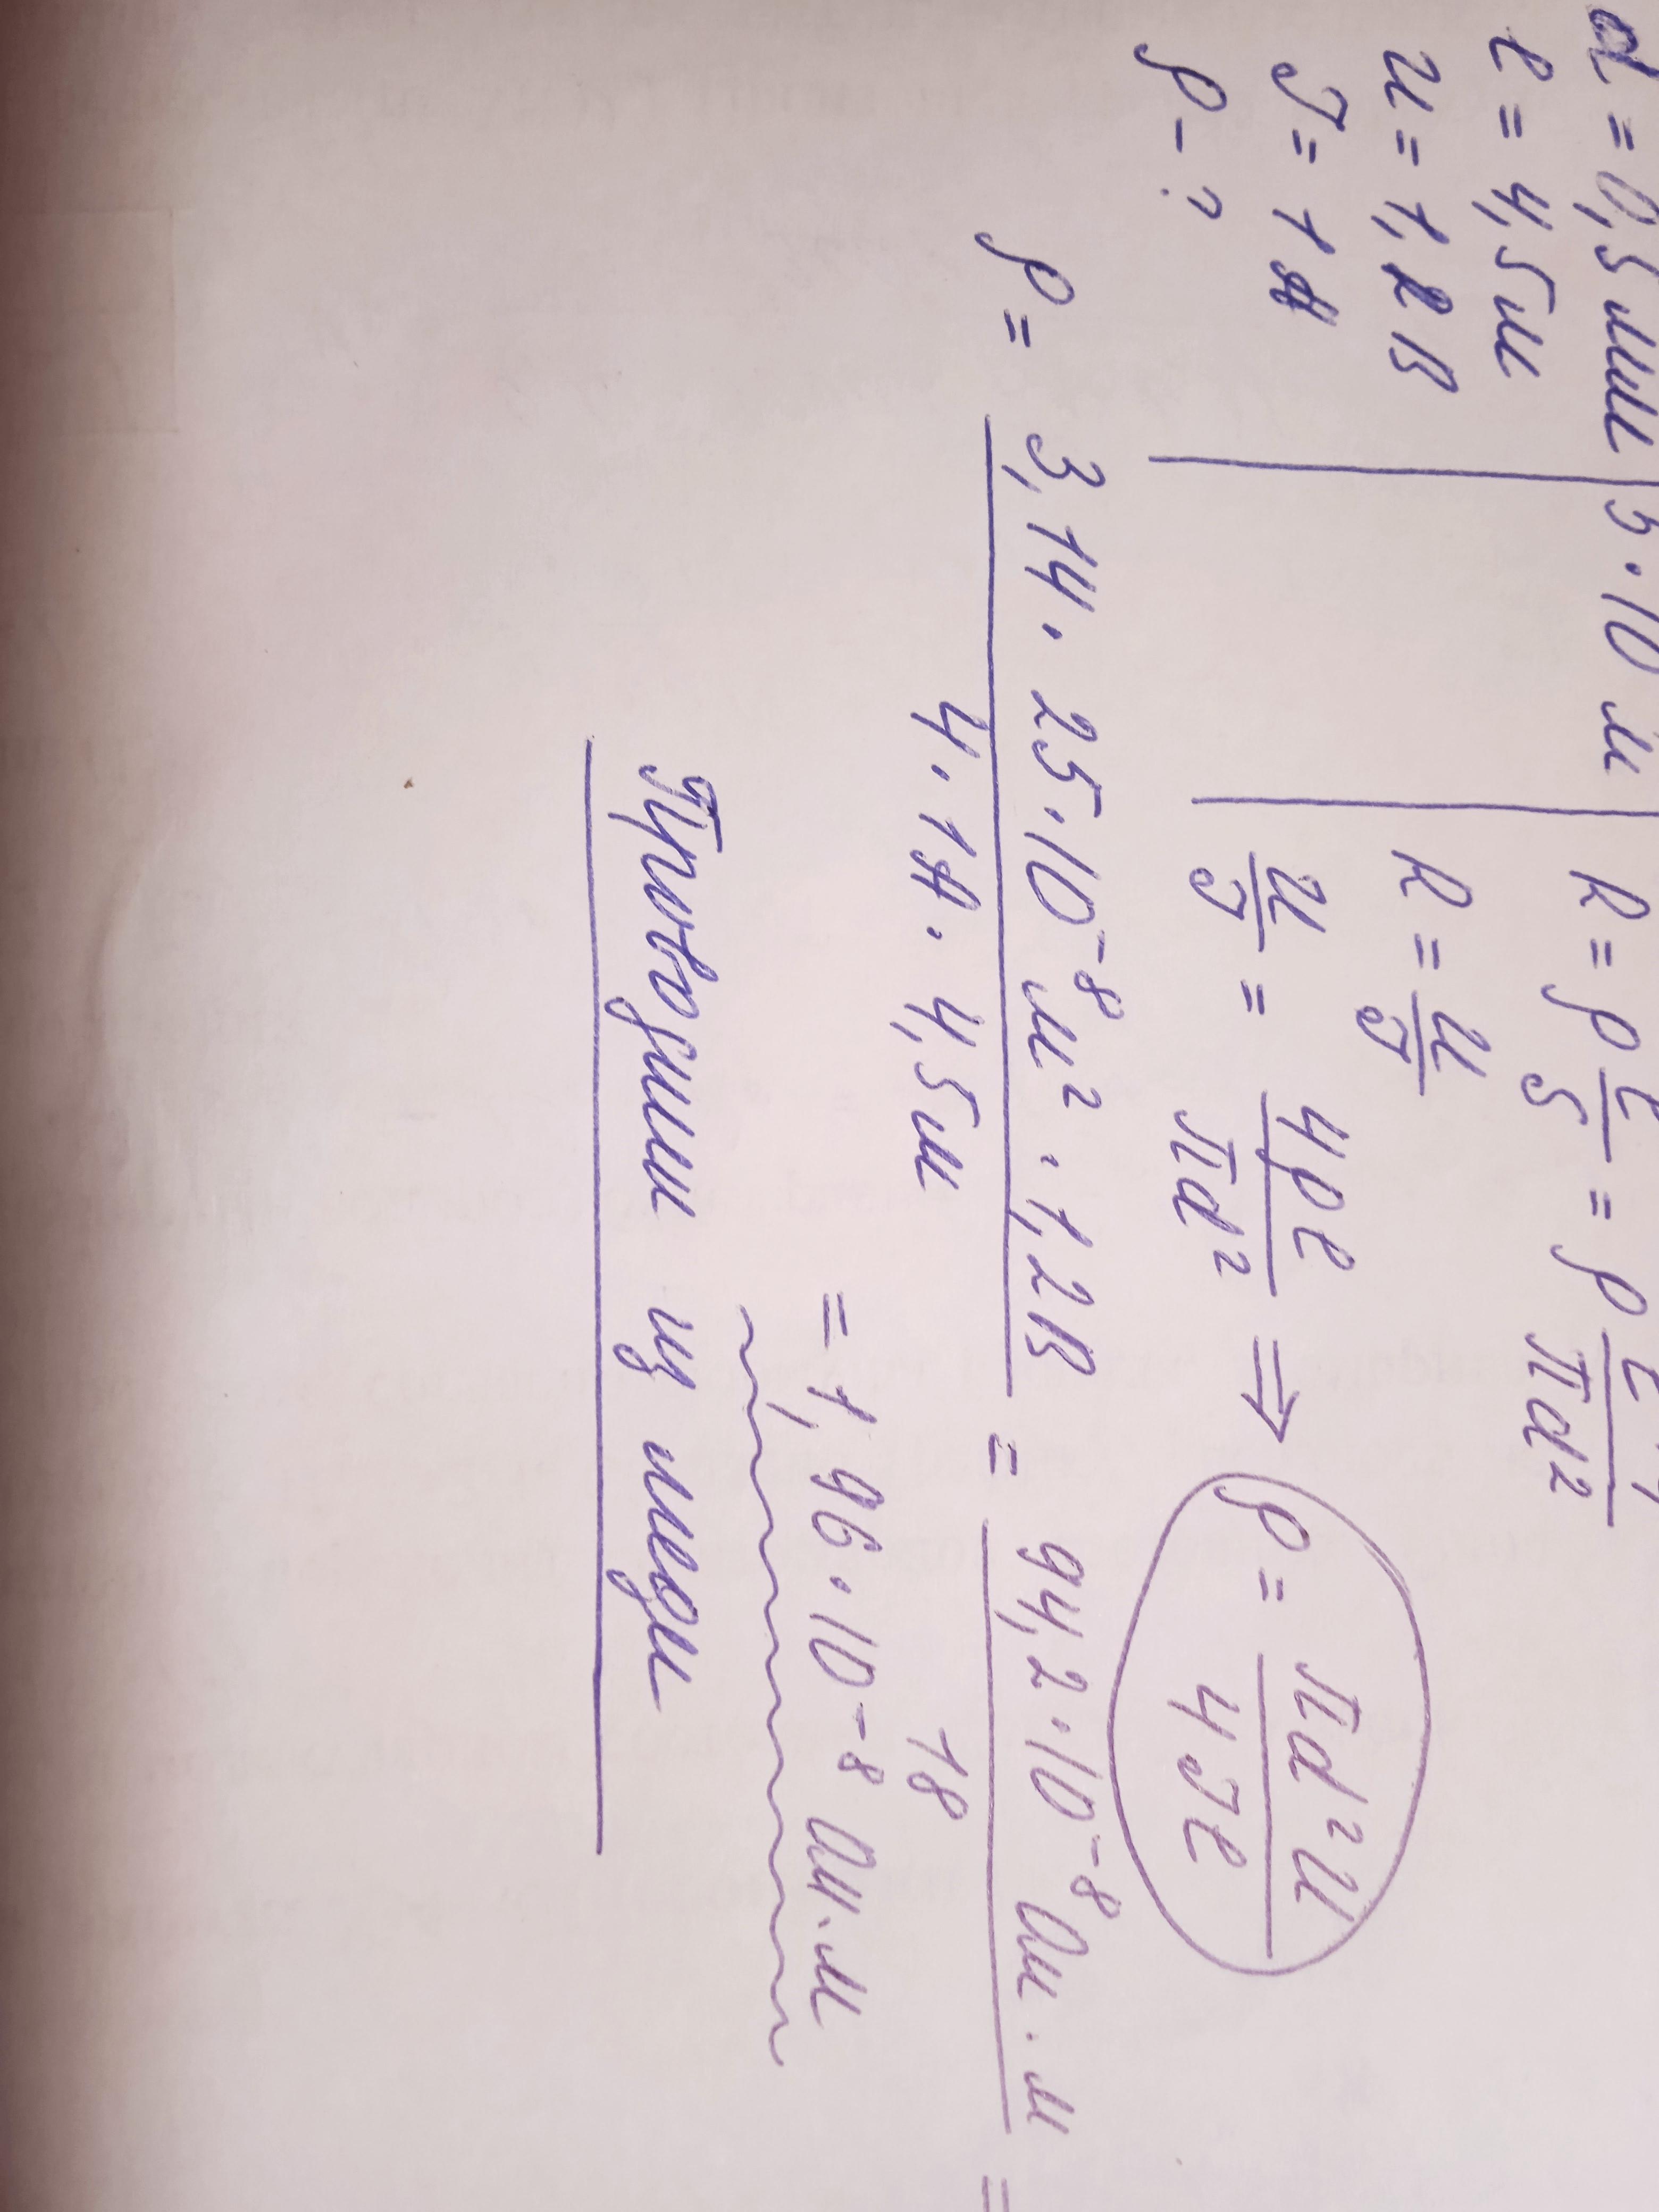 d = 0,5 мм | 5 · 10 м | R = ρ l/S = ρ l · 4/πd²
l = 4,5 м
U = 1,2 В | R = U/J
J = 1 А
ρ - ?
U/J = 4ρl/πd² ⇒ ρ = πd²U/4Jl
ρ = 3,14 · 25 · 10⁻⁸ м² · 1,2 В / 4 · 1 А · 4,5 м = 94,2 · 10⁻⁸ Ом · м / 18 =
= 1,96 · 10⁻⁸ Ом · м
Проводник из меди